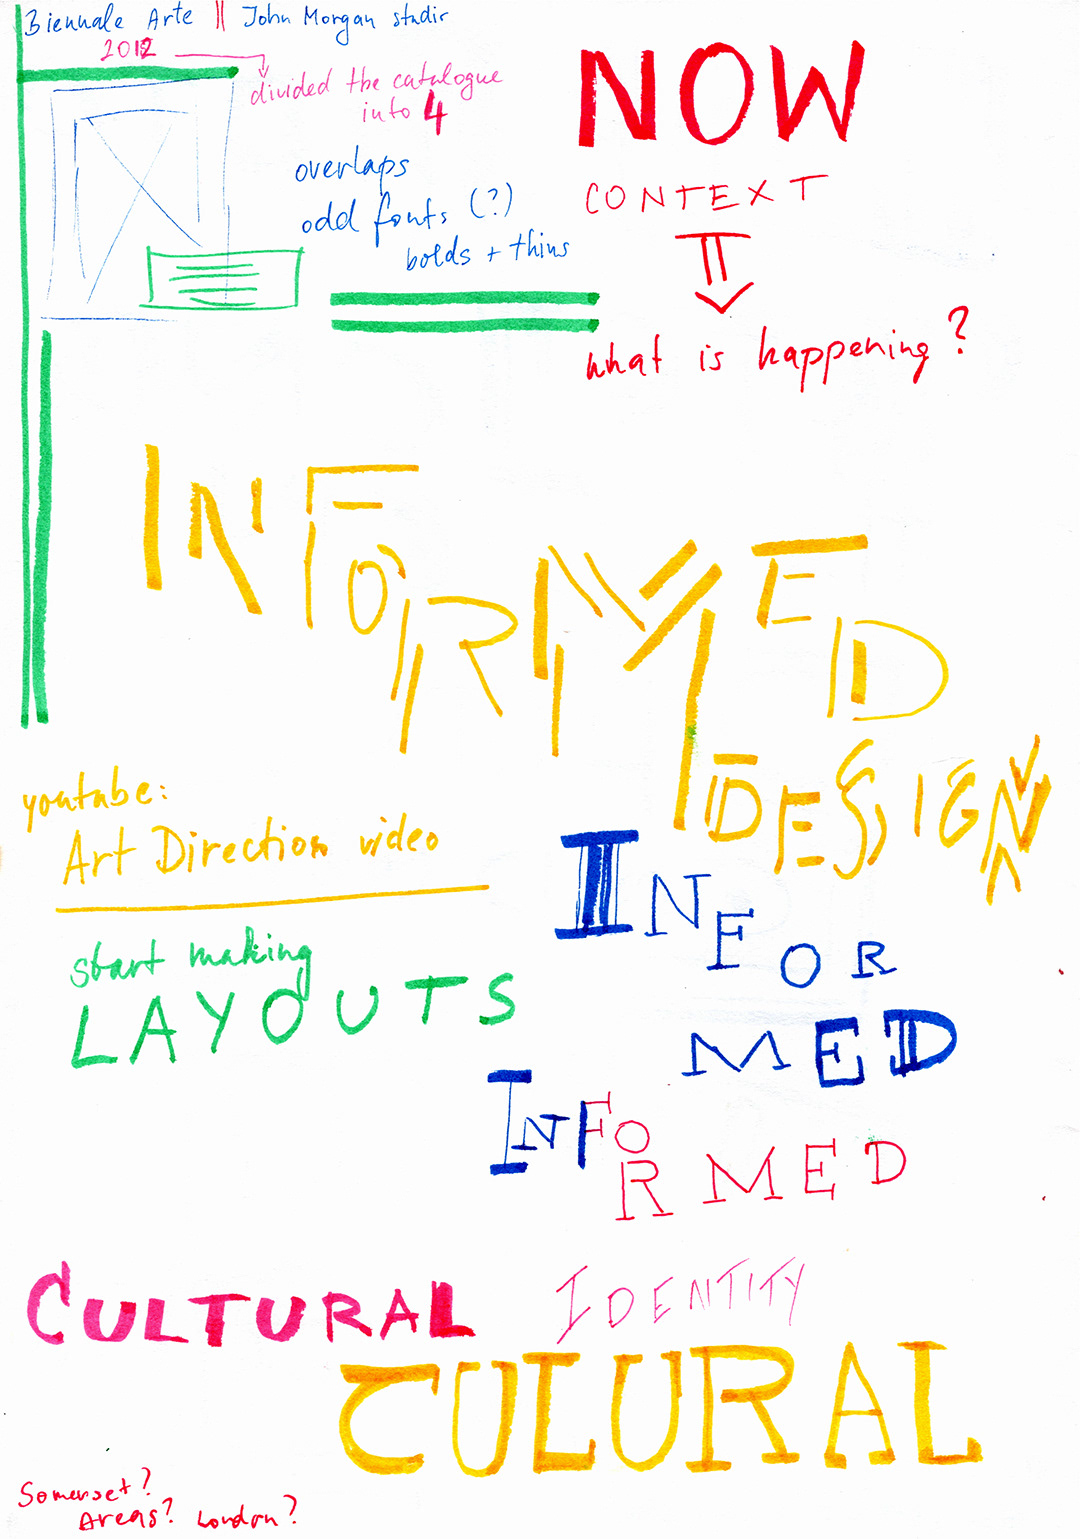 Biennale Arte || John Morgan studio
2012
divided the catalogue
into 4
overlaps
odd fonts (?)
bolds + thins
NOW
CONTEXT
what is happening?
INFORMED
DESIGN
youtube:
Art Direction video
start making
LAYOUTS
INFOR
MED
INFORMED
CULTURAL IDENTITY
CULURAL
Somerset?
Areas? London?